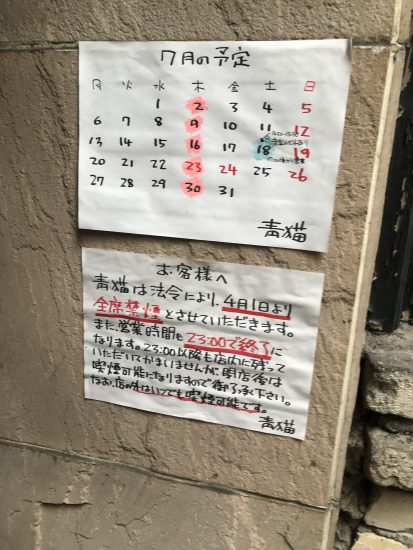 7月の予定
月 火 水 木 金 土 日
1 2 3 4 5
6 7 8 9 10 11 12
13 14 15 16 17 18 19
20 21 22 23 24 25 26
27 28 29 30 31
青猫
お客様へ
青猫は法令により、4月1日より
全席禁煙とさせていただきます。
また、営業時間も23:00で終了に
なります。23:00以降も店内に残って
いただいてかまいませんが、閉店後は
喫煙可能になりますので御了承下さい。
なお、店の外はいつでも喫煙可能です。
青猫